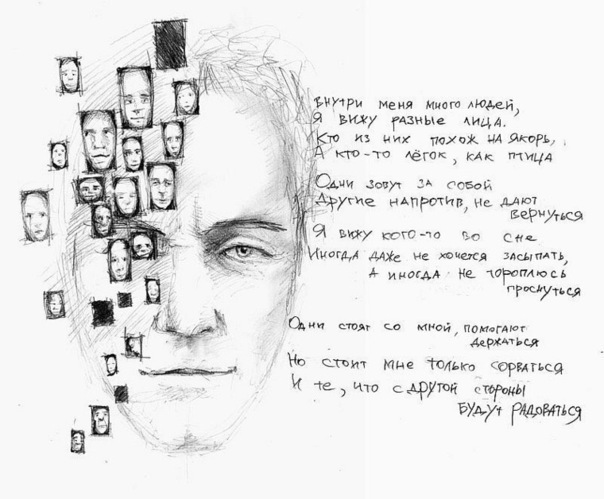 внутри меня много людей,
Я вижу разные лица.
Кто из них похож на якорь,
А кто-то лёгок, как птица
Одни зовут за собой
Другие напротив, не дают
вернуться
Я вижу кого-то во сне
Иногда даже не хочется засыпать,
а иногда не тороплюсь
проснуться
Одни стоят со мной, помогают
держаться
Но стоит мне только сорваться
И те, что с другой стороны
будут радоваться